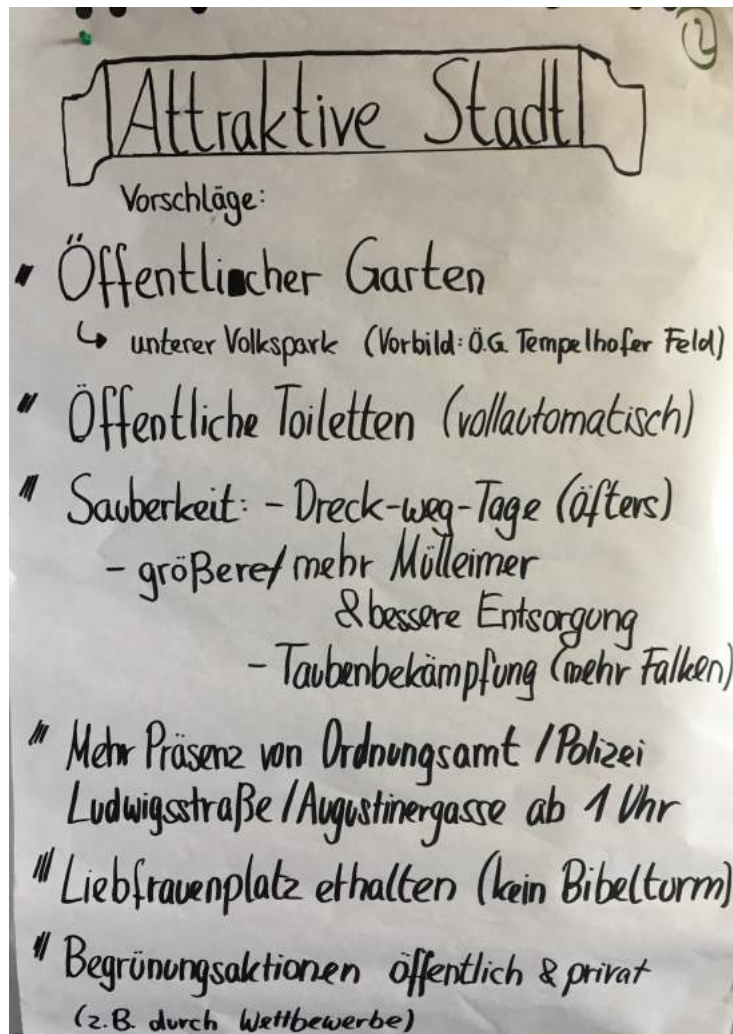 2
Attraktive Stadt
Vorschläge:
Öffentlicher Garten
↳ unterer Volkspark (Vorbild: Ö.G. Tempelhofer Feld)
" Öffentliche Toiletten (vollautomatisch)
Sauberkeit: - Dreck-weg-Tage (öfters)
- größere/mehr Mülleimer
& bessere Entsorgung
- Taubenbekämpfung (mehr Falken)
Mehr Präsenz von Ordnungsamt / Polizei
Ludwigsstraße / Augustinergasse ab 1 Uhr
Liebfrauenplatz erhalten (kein Bibelturm)
Begrünungsaktionen öffentlich & privat
(z.B. durch Wettbewerbe)